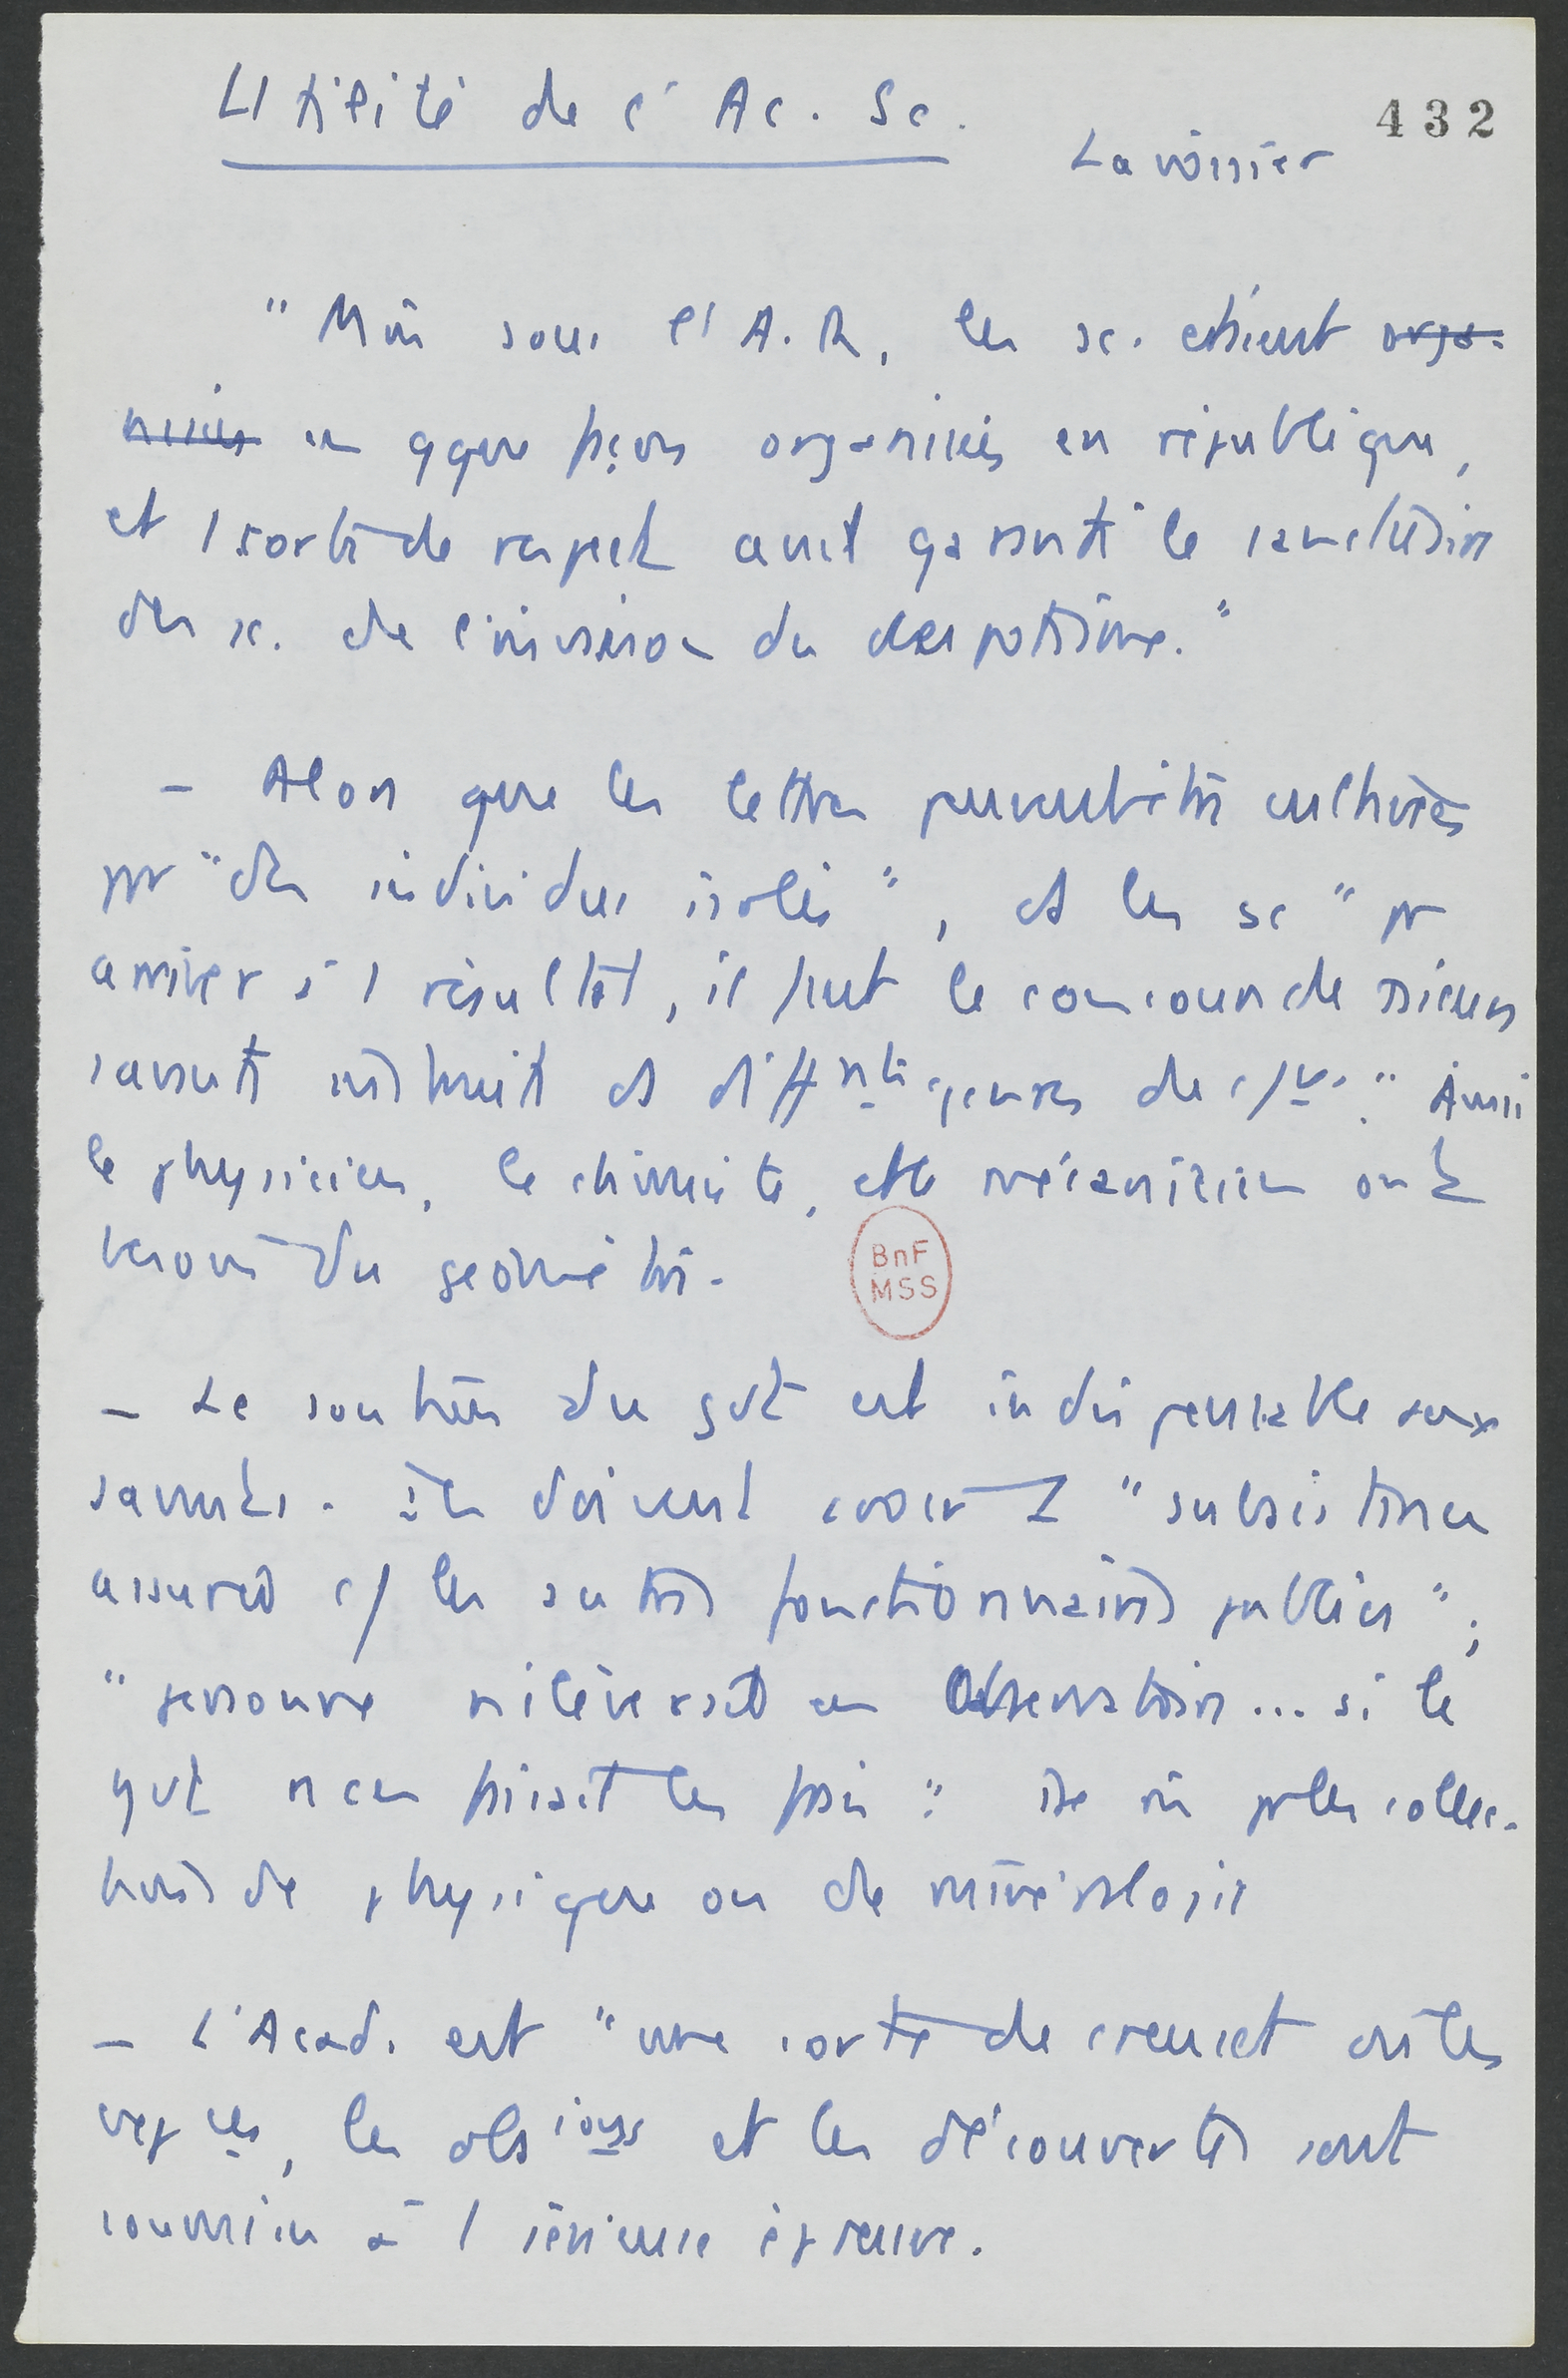 Utilité de l'Ac. Sc.
432
Lavoisier
"Mais sous l'A.R., les sc. étaient orga-
nisées en qque façon organisées en république,
et 1 sorte de respect avait garanti le sanctuaire
des sc. de l'invasion du despotisme."
- Alors que les lettres peuvent être cultivées
par "des individus isolés", et les sc "pr
arriver à 1 résultat, il faut le concours de plusieurs
savants instruits ds diffnts genres de c/ces." Ainsi
le physicien, le chimiste, et le mécanicien ont
besoin du géomètre.
- Le soutien du gvt est indispensable aux
savants. Ils doivent avoir 1 "subsistance
assurée c/ les autres fonctionnaires publics";
"personne n'élèverait un Observatoire... si le
gvt n'en faisait les frais": de m pr les collec-
tions de physique ou de minéralogie
- L'Acad. est "une sorte de creuset où les
expces, les obsions et les découvertes sont
soumises à 1 sérieuse épreuve.
BnF
MSS